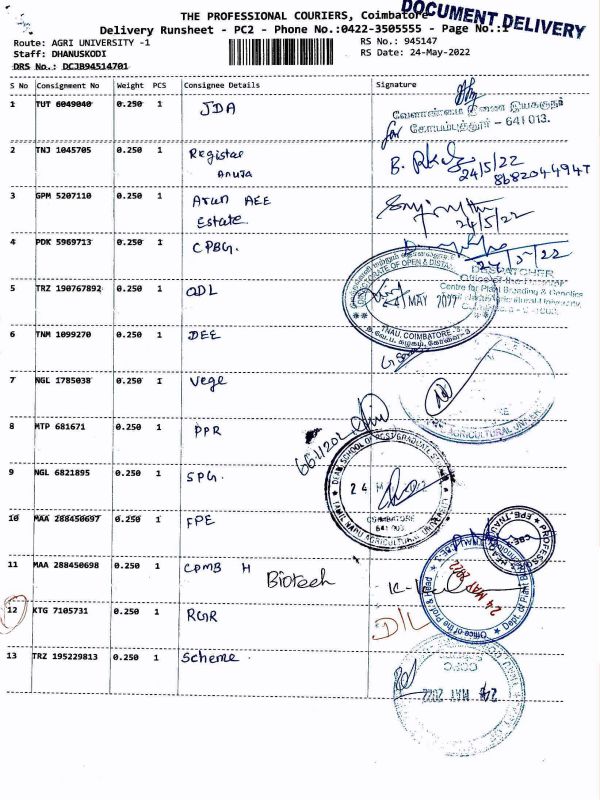 DOCUMENT DELIVERY
THE PROFESSIONAL COURIERS, Coimbatore
Delivery Runsheet - PC2 - Phone No.:0422-3505555 - Page No.:1
Route: AGRI UNIVERSITY -1
RS No.: 945147
Staff: DHANUSKODI
RS Date: 24-May-2022
DRS No.: DCJB94514701
S No Consignment No Weight PCS Consignee Details Signature
1 TUT 6049040 0.250 1 JDA
வேளாண்மை இணை இயக்குநர்
for கோயம்புத்தூர் - 641 013.
2 TNJ 1045705 0.250 1 Registar
24/5/22
3 GPM 5207110 0.250 1 Arun AEE
Estate
24/5/22
4 PDK 5969713 0.250 1 CPBG.
24/5/22
DESPATCHER
Centre for Plant Breeding & Genetics
5 TRZ 190767892 0.250 1 ODL
DIRECTORATE OF OPEN & DISTA
24 MAY 2022
TNAU, COIMBATORE - 3.
6 TNM 1099270 0.250 1 DEE
7 NGL 1785038 0.250 1 Vege
AGRICULTURAL UNIVE
8 MTP 681671 0.250 1 PPR
9 NGL 6821895 0.250 1 SPG.
DEAN SCHOOL OF POSTGRADUATE
24 M 2022
COIMBATORE
641 003.
TAMIL NADU AGRICULTURAL UNIVERSITY
10 MAA 288450697 0.250 1 FPE
PROFESSO
EPE, TNAU
11 MAA 288450698 0.250 1 CPMB H
Biotech
24 MAY 2022
Office of the Prof. & Head
Dept. of Plant B
12 KTG 7105731 0.250 1 RGR
D/L
13 TRZ 195229813 0.250 1 Scheme
24 MAY 2022